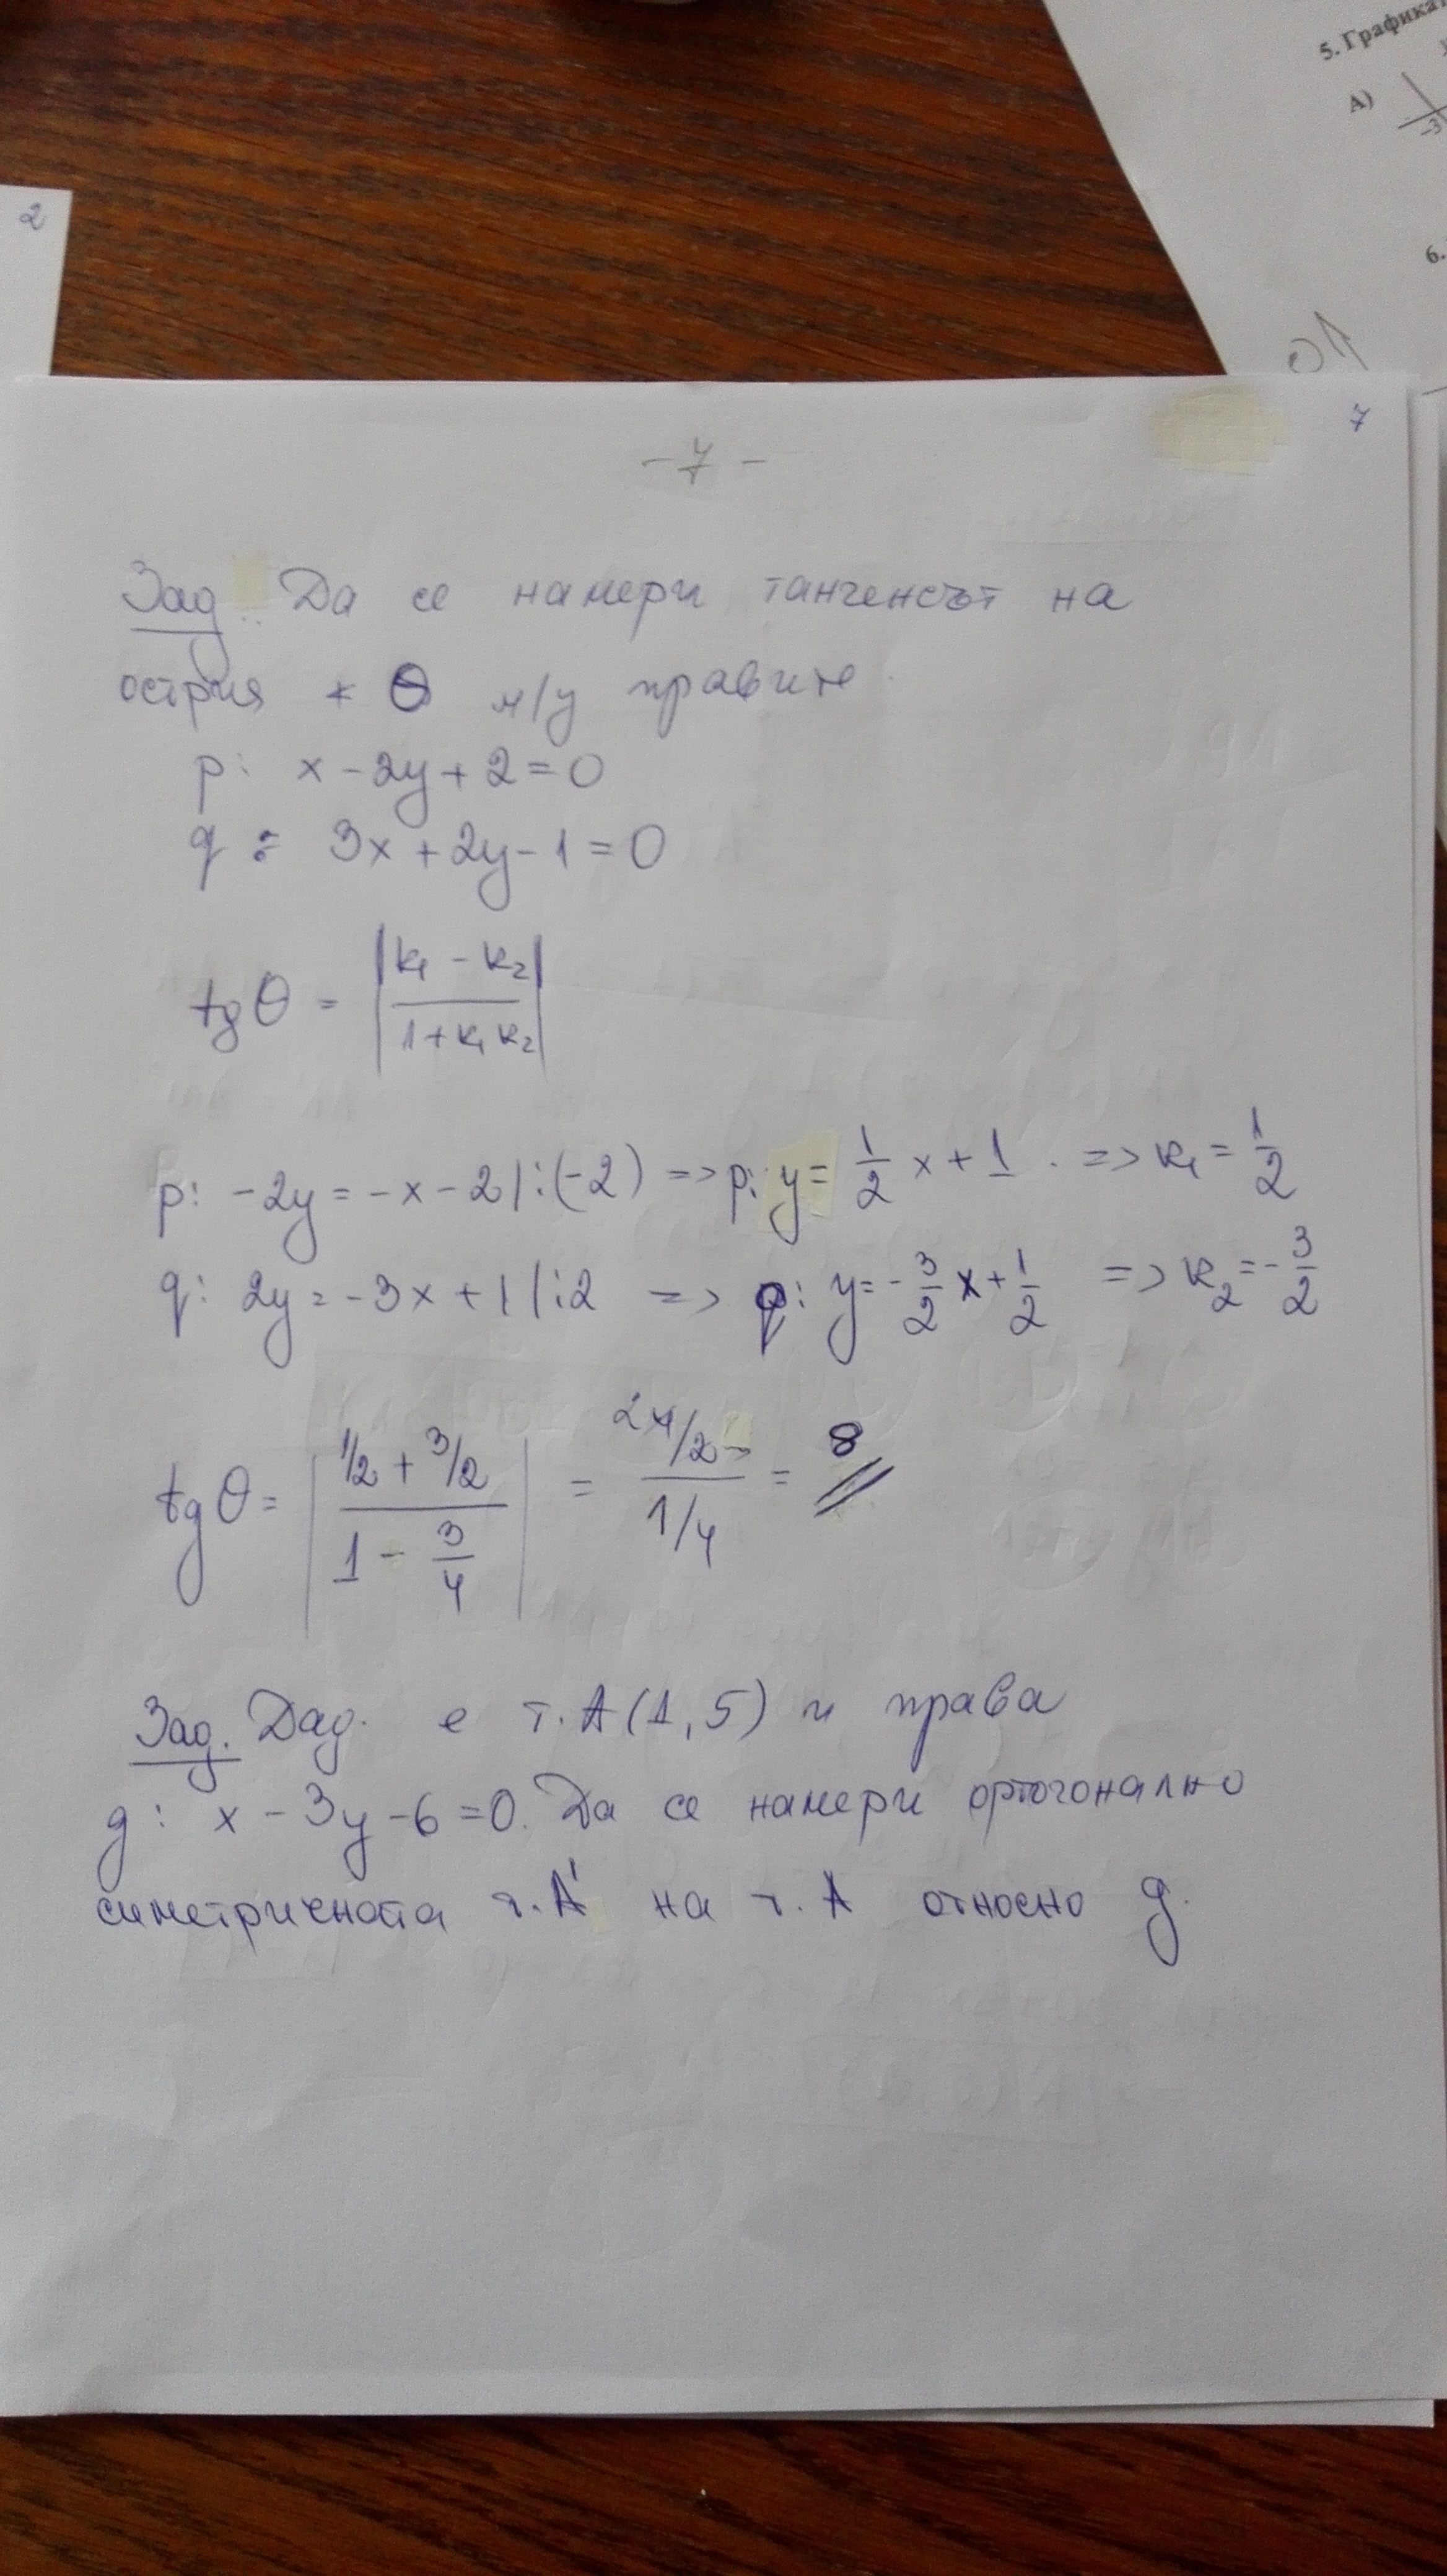 5. Графикат
А)
-3
6.
2
7
- 7 -
Зад. Да се намери тангенсът на
острия ∢ θ м/у правите
p: x - 2y + 2 = 0
q: 3x + 2y - 1 = 0
tg θ = |k₁ - k₂ / 1 + k₁k₂|
p: -2y = -x - 2 |:(-2) => p: y = 1/2 x + 1. => k₁ = 1/2
q: 2y = -3x + 1 |:2 => q: y = -3/2 x + 1/2 => k₂ = -3/2
tg θ = |1/2 + 3/2 / 1 - 3/4| = 4/2 / 1/4 = 8
Зад. Дад. е т. A(1,5) и права
g: x - 3y - 6 = 0. Да се намери ортогонално
симетричната т. A' на т. A относно g.